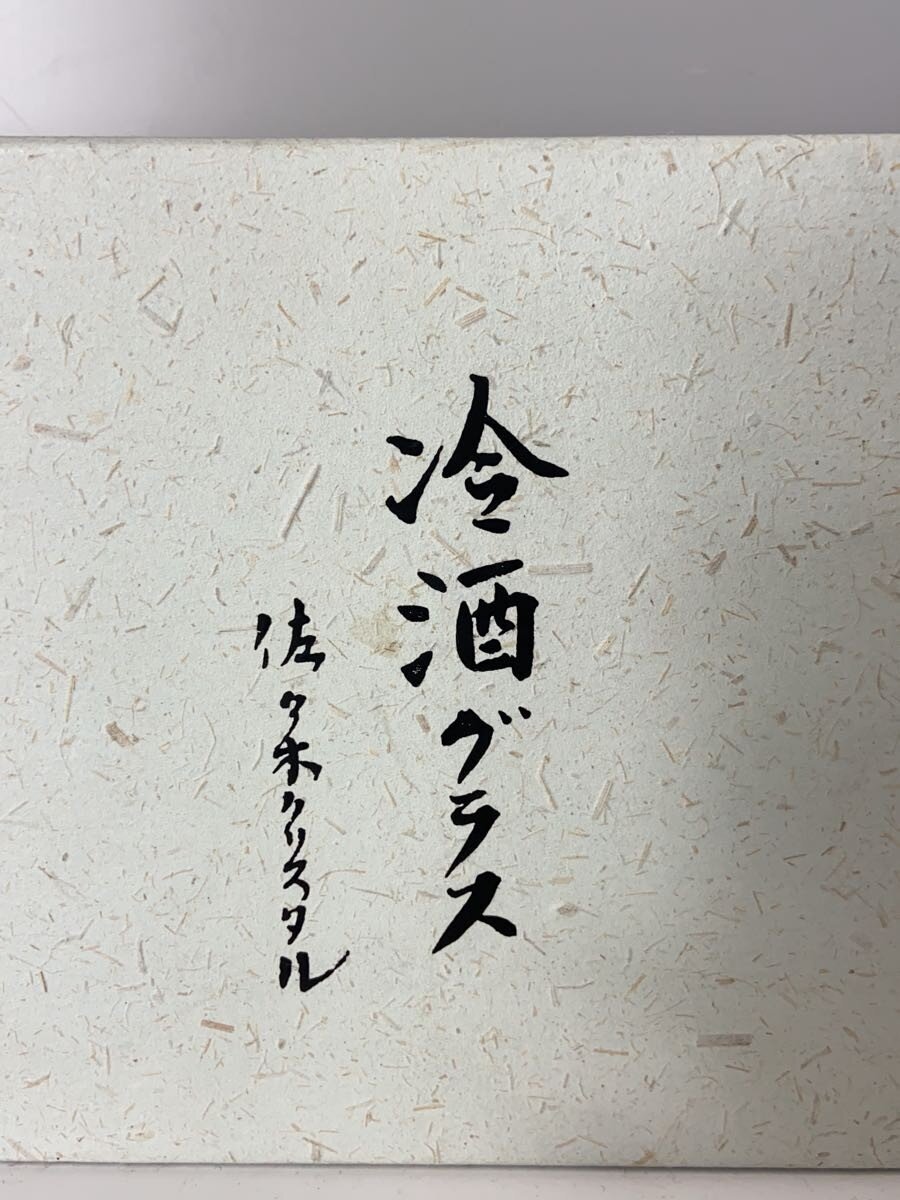 冷酒グラス
佐々木クリスタル